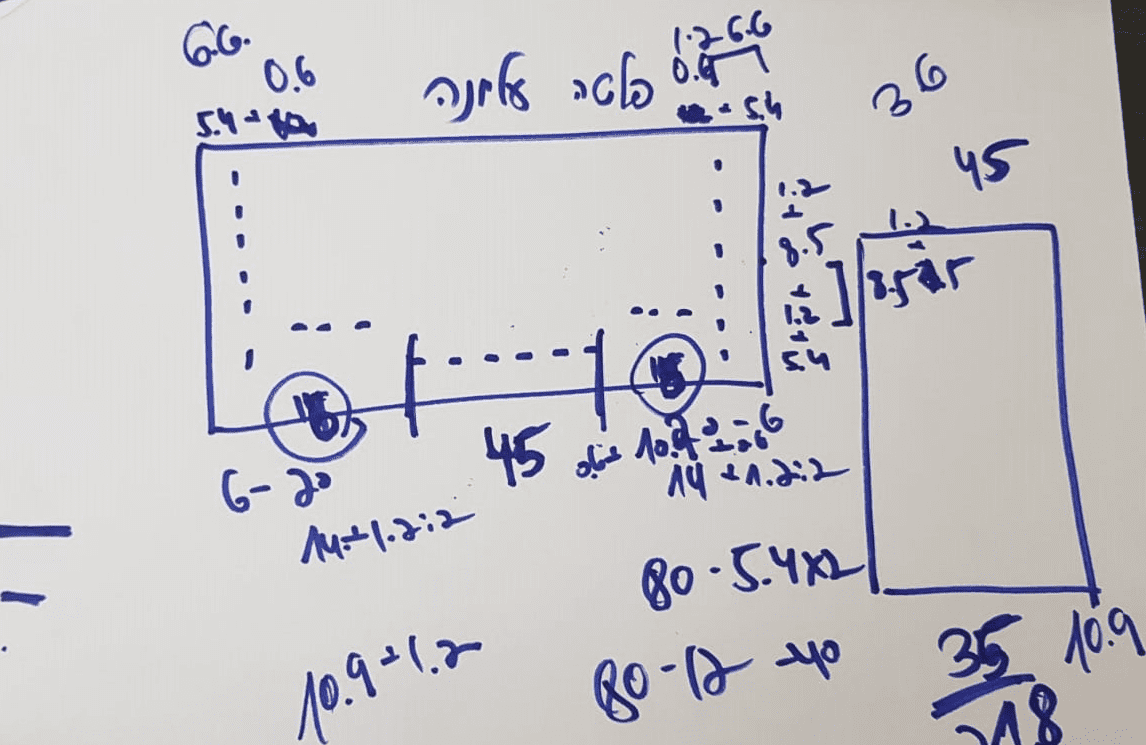 6.6.
0.6
פלטה עליונה
1.2 6.6
0.6
5.4
5.4
36
45
1.2
8.5
1.2
5.4
1.2
8.5
6-20
45
14+1.2:2
14+1.2:2
80-5.4x2
10.9+1.2
80-12-40
35
10.9
218